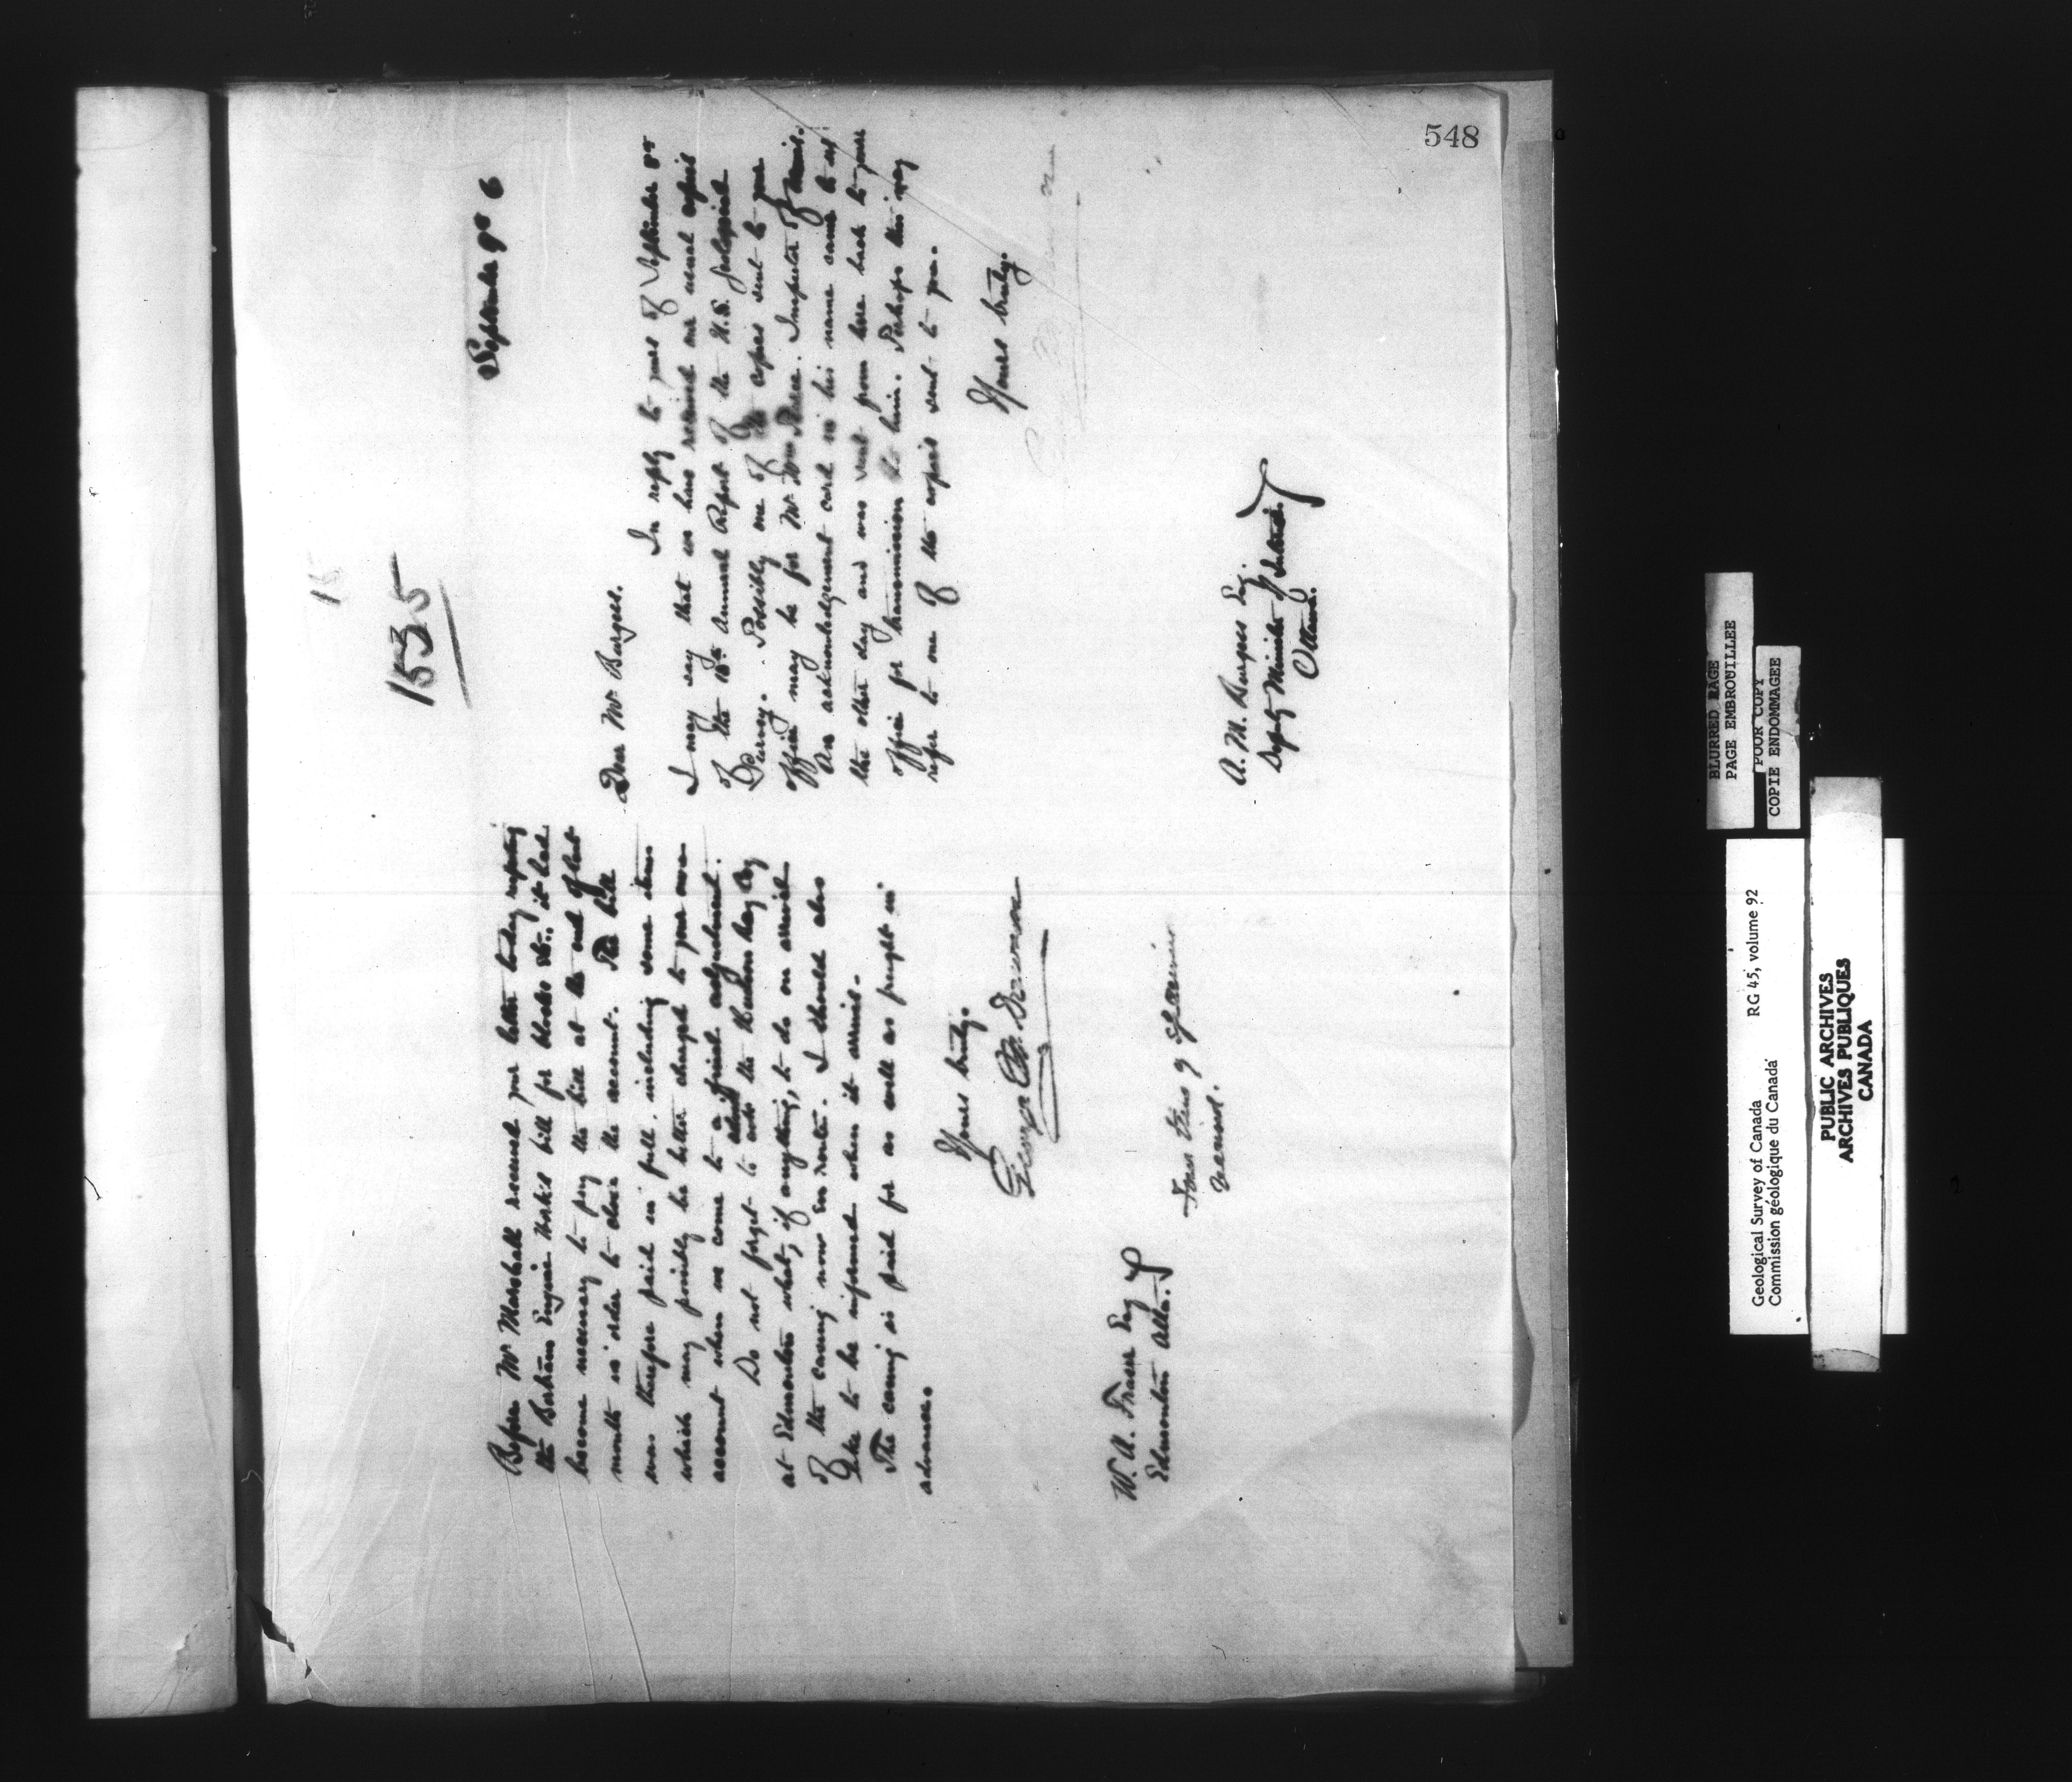 548
Before Mr Marshall received your letter today respecting
the Bertram Engine Works bill for blocks etc., it had
become necessary to pay the bill at the end of last
month in order to close the account. The bill
was therefore paid in full, including some items
which may possibly be better charged to your own
account when we come to a final adjustment.
Do not forget to ask the Hudson Bay Coy
at Edmonton what, if anything, to do on arrival
of the casing now En route. I should also
like to be informed when it arrives.
The casing is paid for as well as freight in
advance.
Yours truly.
George M. Dawson
W. A. Fraser Esq
Edmonton Alta.
1535
September 9th 6
Dear Mr Burgess.
In reply to yours of September 8th
I may say that we have received our usual copies
of the Annual Report of the U.S. Geological
Survey. Possibly one of the copies sent to your
office may be for Mr Wm Pearce. Inspector of Mines.
An acknowledgement card in his name came to us
the other day and was sent from here back to your
office for transmission to him. Perhaps this may
refer to one of the copies sent to you.
Yours truly.
A. M. Burgess Esq.
Deputy Minister of Interior
Ottawa.
BLURRED PAGE
PAGE EMBROUILLEE
POOR COPY
COPIE ENDOMMAGEE
Geological Survey of Canada RG 45, volume 92
Commission géologique du Canada
PUBLIC ARCHIVES
ARCHIVES PUBLIQUES
CANADA